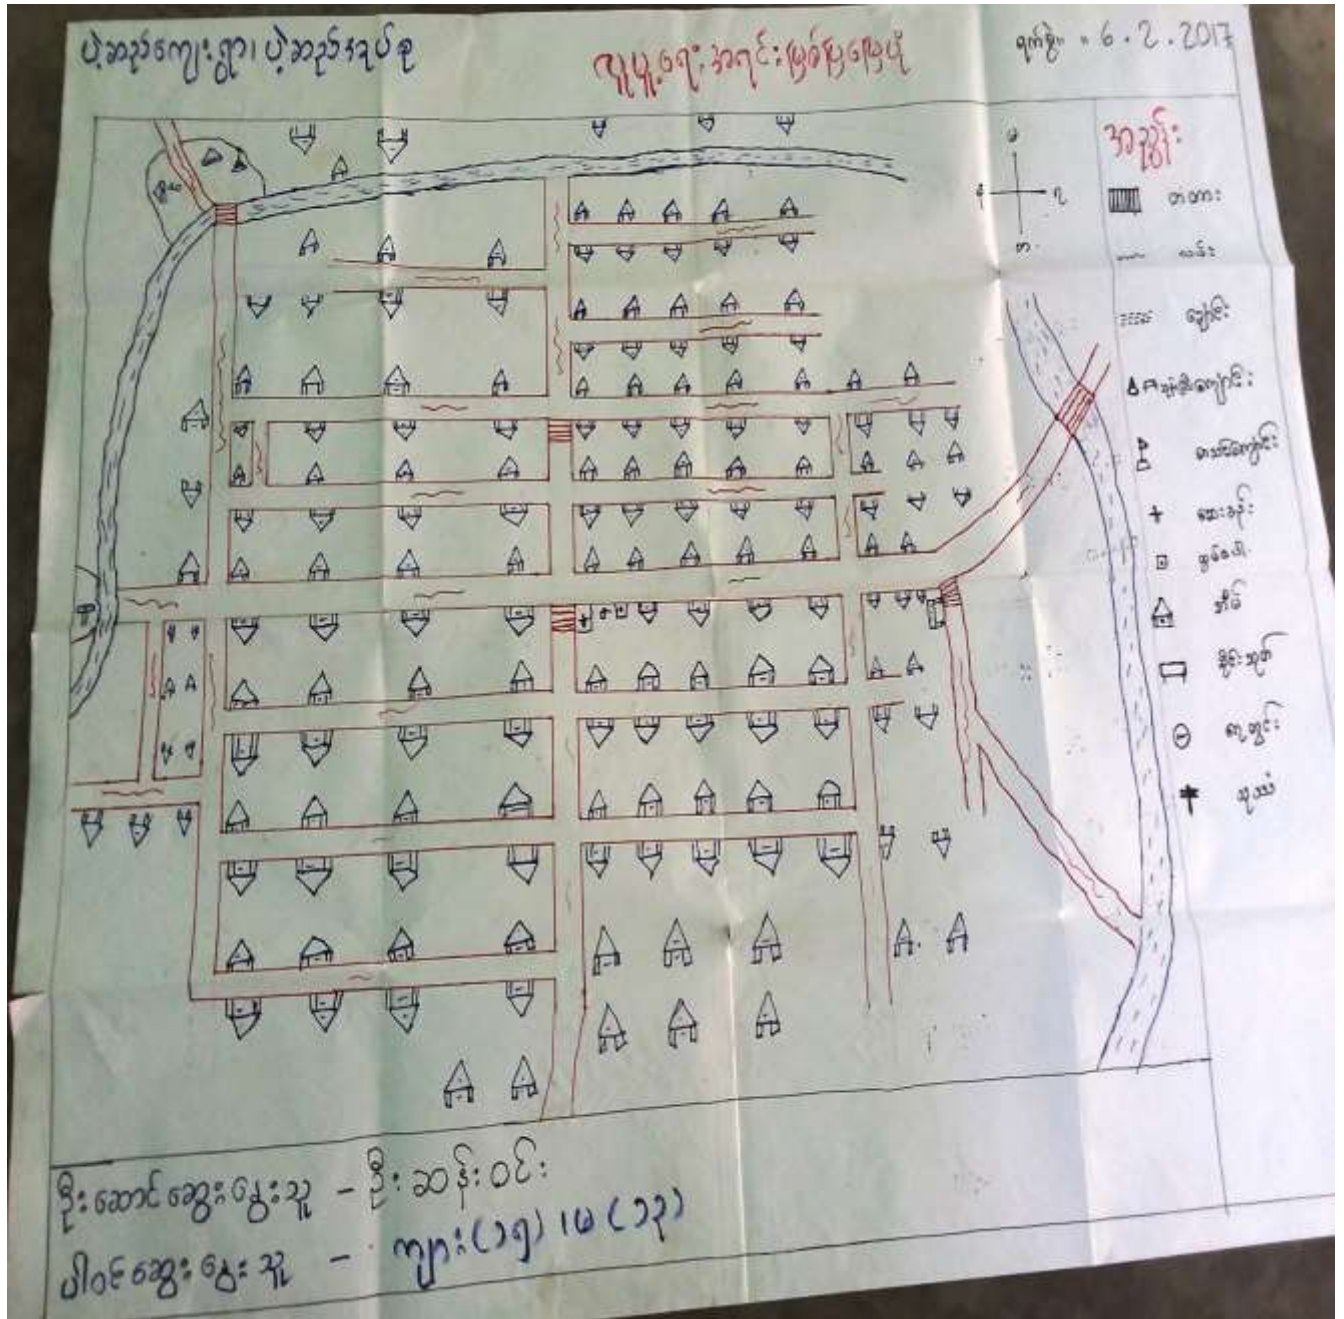 ပဲ့ဆည်ကျေးရွာ၊ ပဲ့ဆည်အုပ်စု
လူမှုရေးအရင်းအမြစ်ပြမြေပုံ
ရက်စွဲ။ ။ 6.2.2017
အညွှန်း
တံတား
လမ်း
ချောင်း
ဘုန်းကြီးကျောင်း
စာသင်ကျောင်း
ဆေးခန်း
အိမ်
ရေတွင်း
ဦးဆောင်ဆွေးနွေးသူ – ဦးဆန်းဝင်း
ပါဝင်ဆွေးနွေးသူ – ကျား(၁၅) ၊ မ(၁၃)